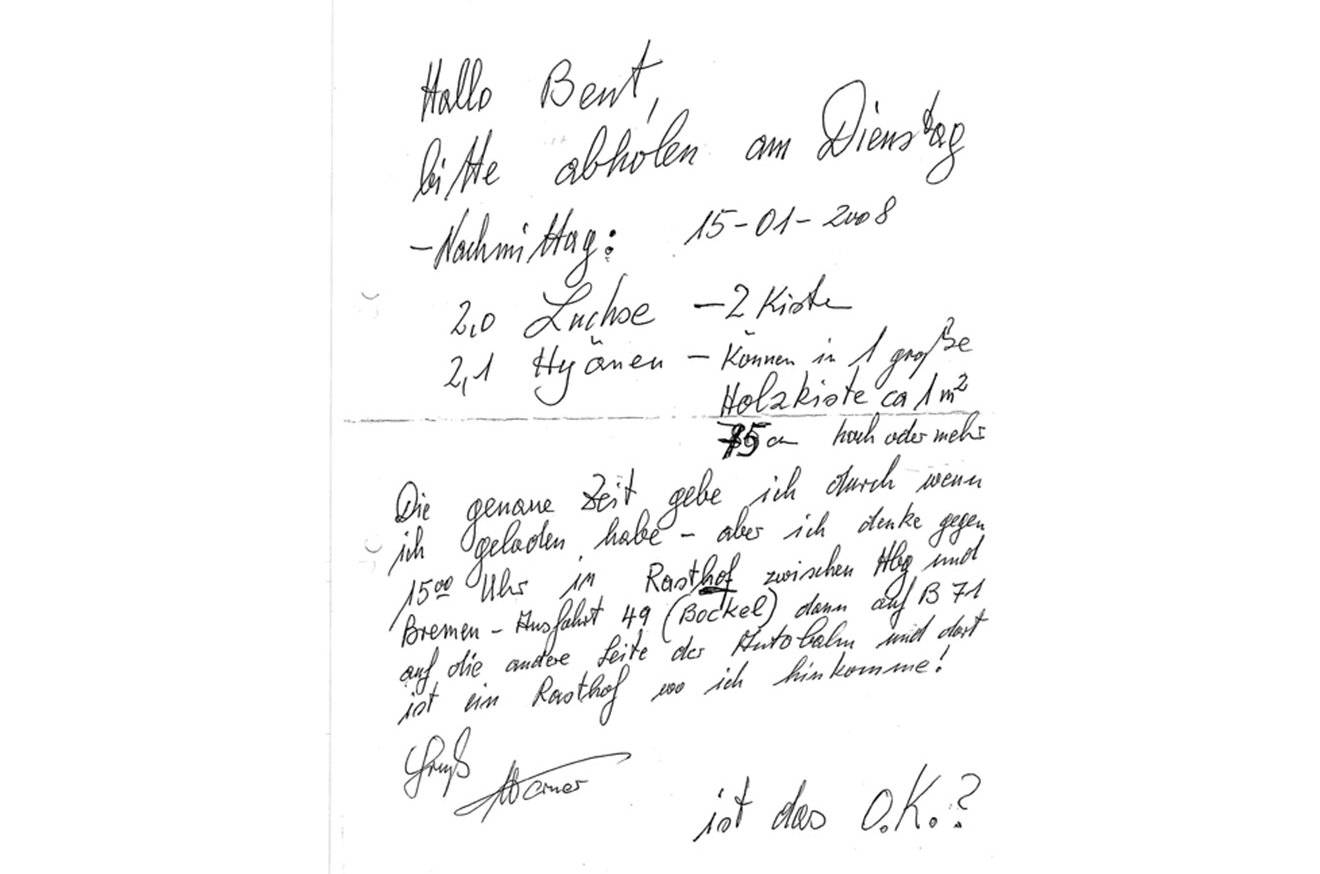 Hallo Bent,
bitte abholen am Dienstag
- Nachmittag: 15-01-2008
2,0 Luchse - 2 Kisten
2,1 Hyänen - können in 1 große
Holzkiste ca 1m²
75 cm hoch oder mehr
Die genaue Zeit gebe ich durch wenn
ich geladen habe - aber ich denke gegen
15⁰⁰ Uhr in Rasthof zwischen Hbg und
Bremen - Ausfahrt 49 (Bockel) dann auf B 71
auf die andere Seite der Autobahn und dort
ist ein Rasthof wo ich hinkomme!
Gruß Werner
ist das O.K.?